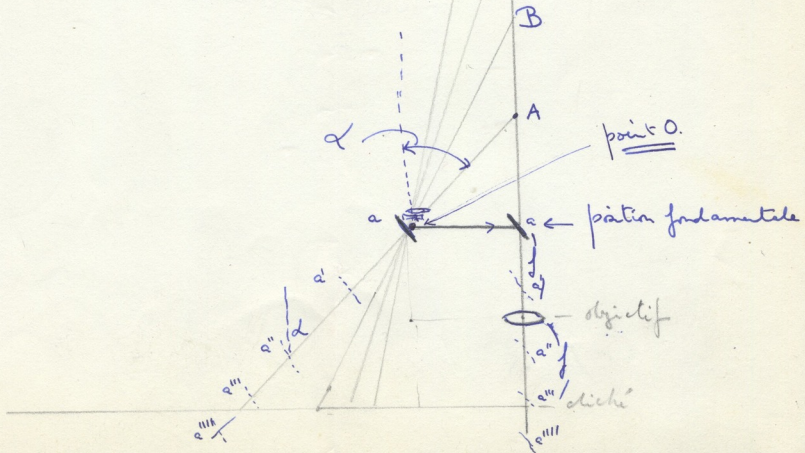 B
A
α
point O.
a
a ← position fondamentale
a'
a'
objectif
α
a"
a"
f
a'''
a'''
cliché
a''''
a''''